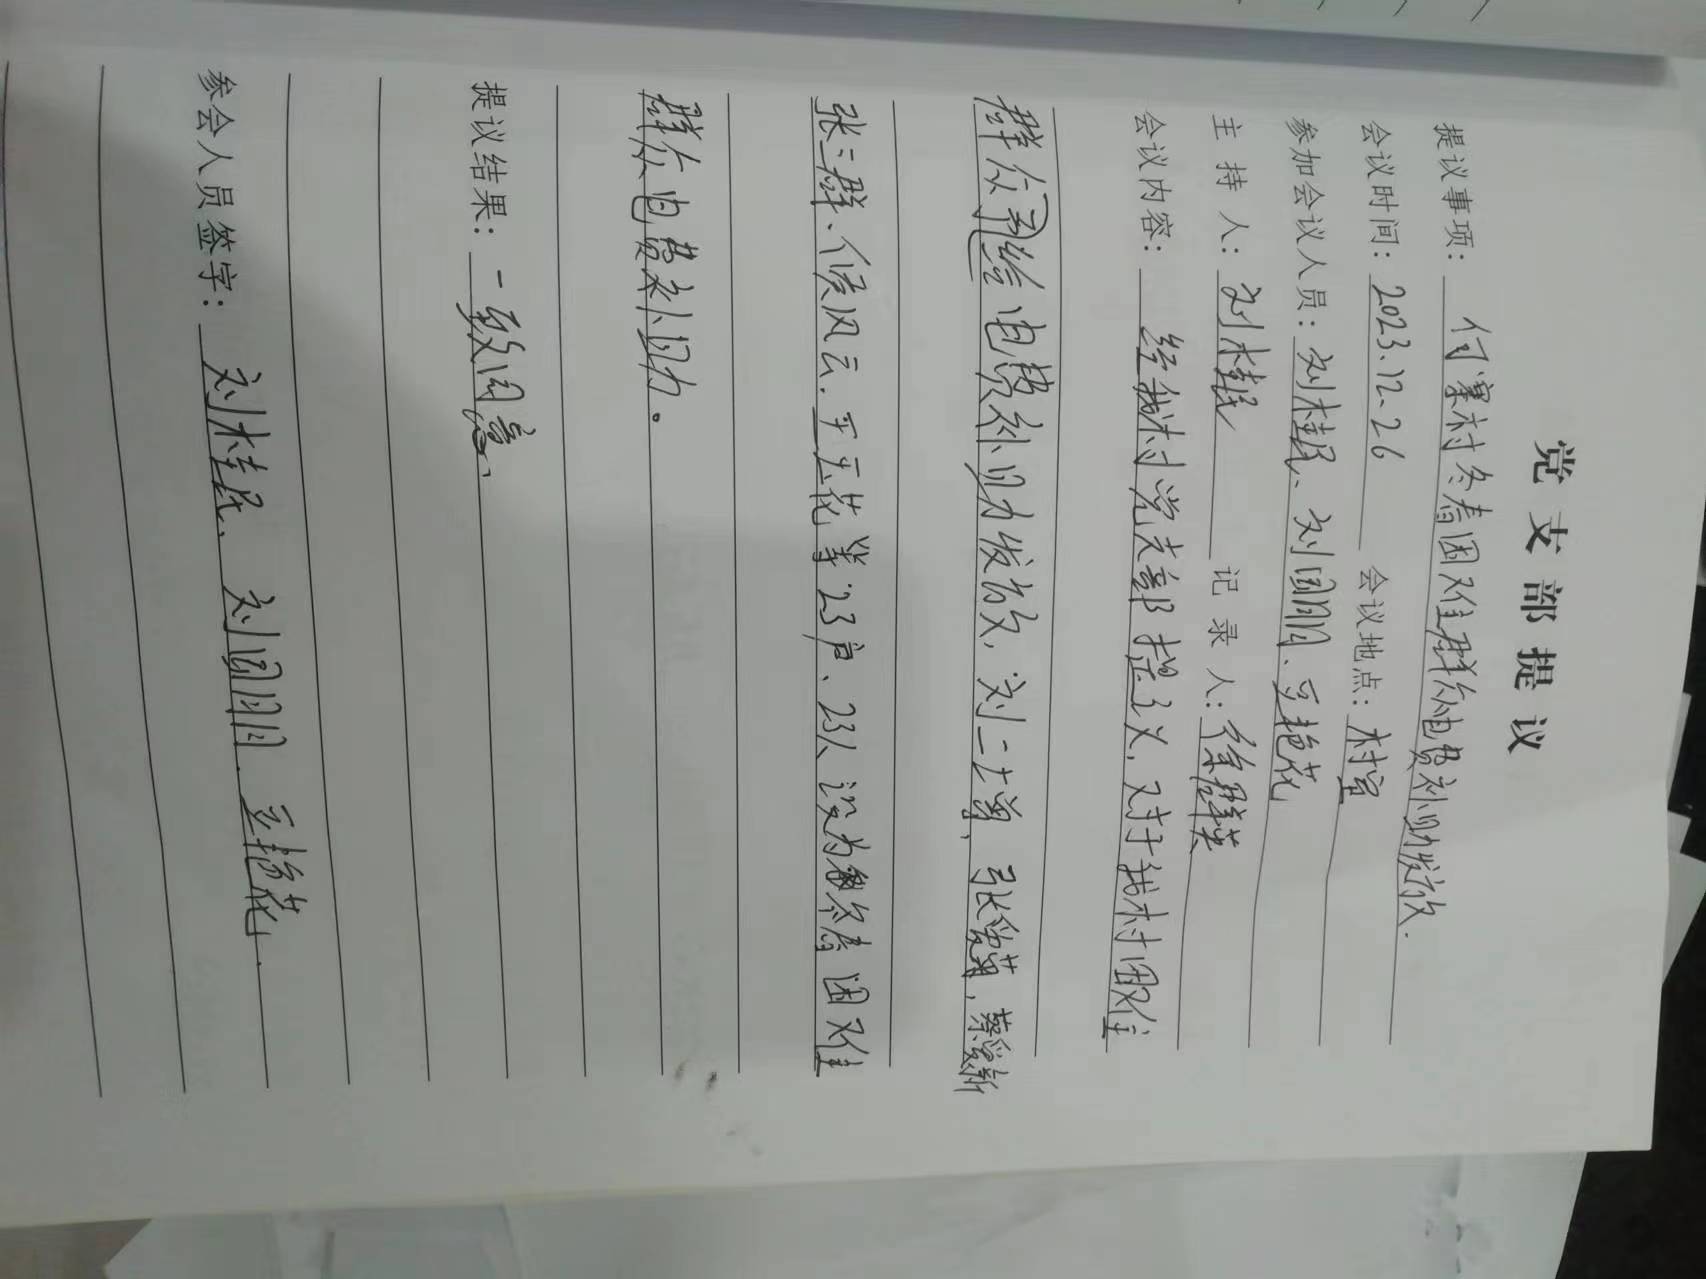 党支部提议
提议事项：付寨村冬春困难群众电费补助发放.
会议时间：2023.12.26 会议地点：村室
参加会议人员：刘桂民、刘团朋、艳花
主持人：刘桂民 记录人：徐群英
会议内容：经我村党支部提议，对于我村困难
群众 给电费补助发放，刘二 、张爱菊，蔡爱新
张三群、侯风云、平玉花等23户、23人设为 冬春困难
群众电费补助。
提议结果：一致同意、
参会人员签字：刘桂民、刘团朋、艳花.